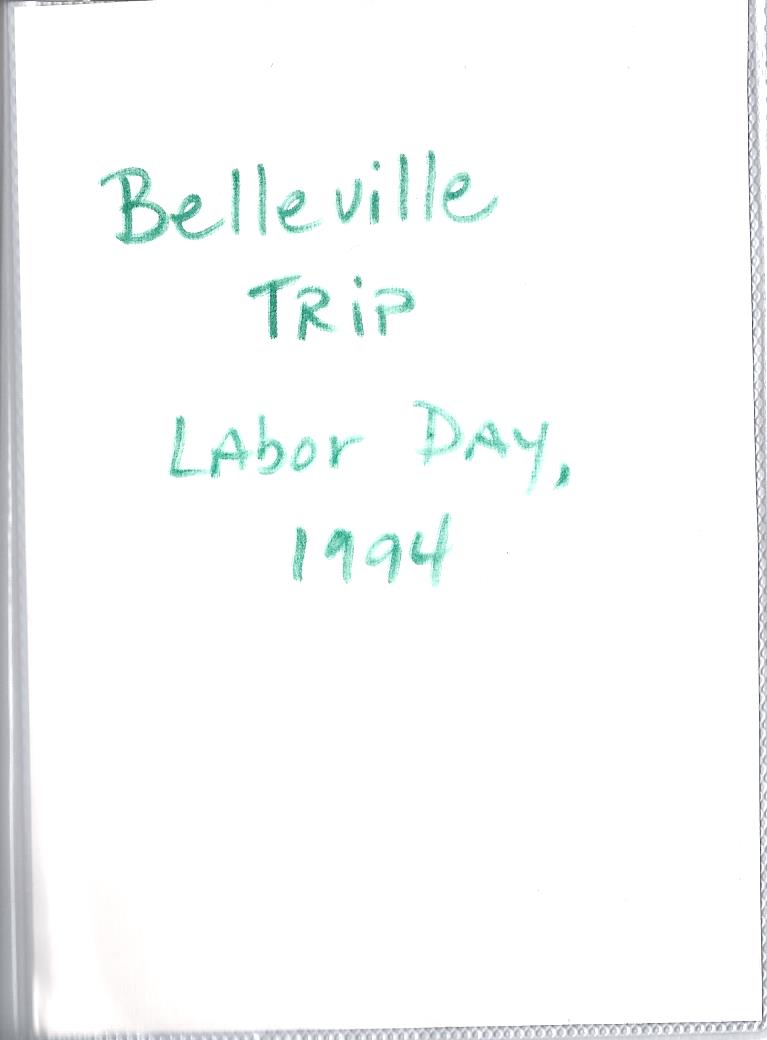 Belleville
TRiP
LAbor DAY,
1994